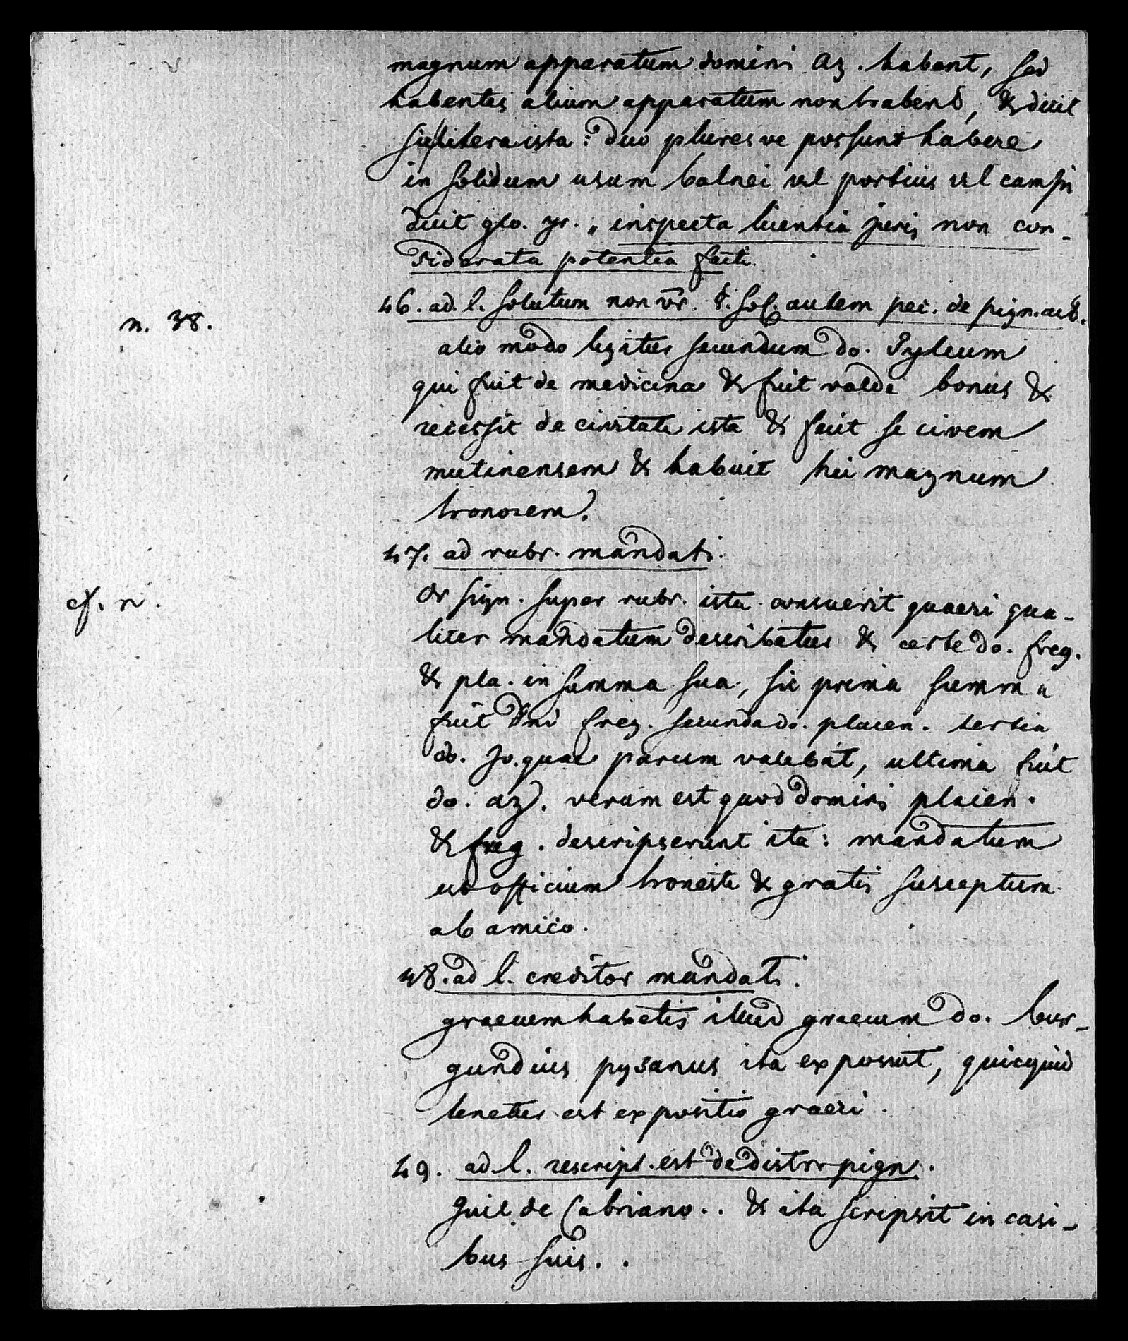 magnum apparatum domini Az. habent, sed
habentes alium apparatum non habent, & dicit
litera ista: duo pluresve possunt habere
in solidum usum balnei vel porticus vel campi
dicit glo. yr. „ inspecta licentia juris non con-
siderata potentia facti
46. ad. l. solutum non vr. §. sol. autem pec. de pign. act.
n. 38.
alio modo legitur secundum do. Pyleum
qui fuit de medicina & fuit valde bonus &
recessit de civitate ista & fecit se civem
mutinensem & habuit hic magnum
honorem.
47. ad rubr. mandati.
cf. n.
Or sign. super rubr. ista consuevit quaeri qua-
liter mandatum describatur & certe do. frog.
& pla. in summa sua, sic prima summa
fuit dni frog. secunda do. placen. tertia
do. Jo. quae parum valebat, ultima fuit
do. az. verum est quod domini placen.
& frog. descripserunt ita: mandatum
est officium honeste & gratis susceptum
ab amico.
48. ad l. creditor mandati.
graecum habetis illud graecum do. bur-
gundius pysanus ita exposuit, quicquid
lenetur est expositio graeci.
49. ad l. rescript. est de distr. pign.
Guil. de Cabriano.. & ita scripsit in casi-
bus suis..